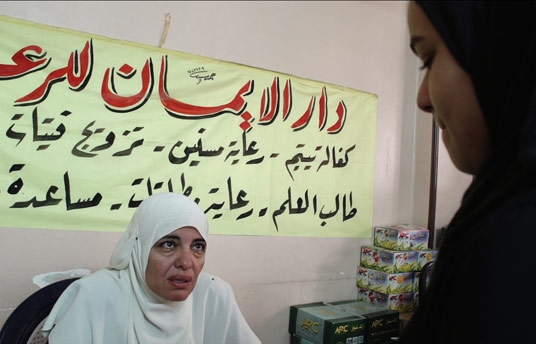 دار الإيمان للرعـ
كفالة يتيم - رعاية مسنين - تزويج فتيات
طالب العلم - رعاية - مساعدة